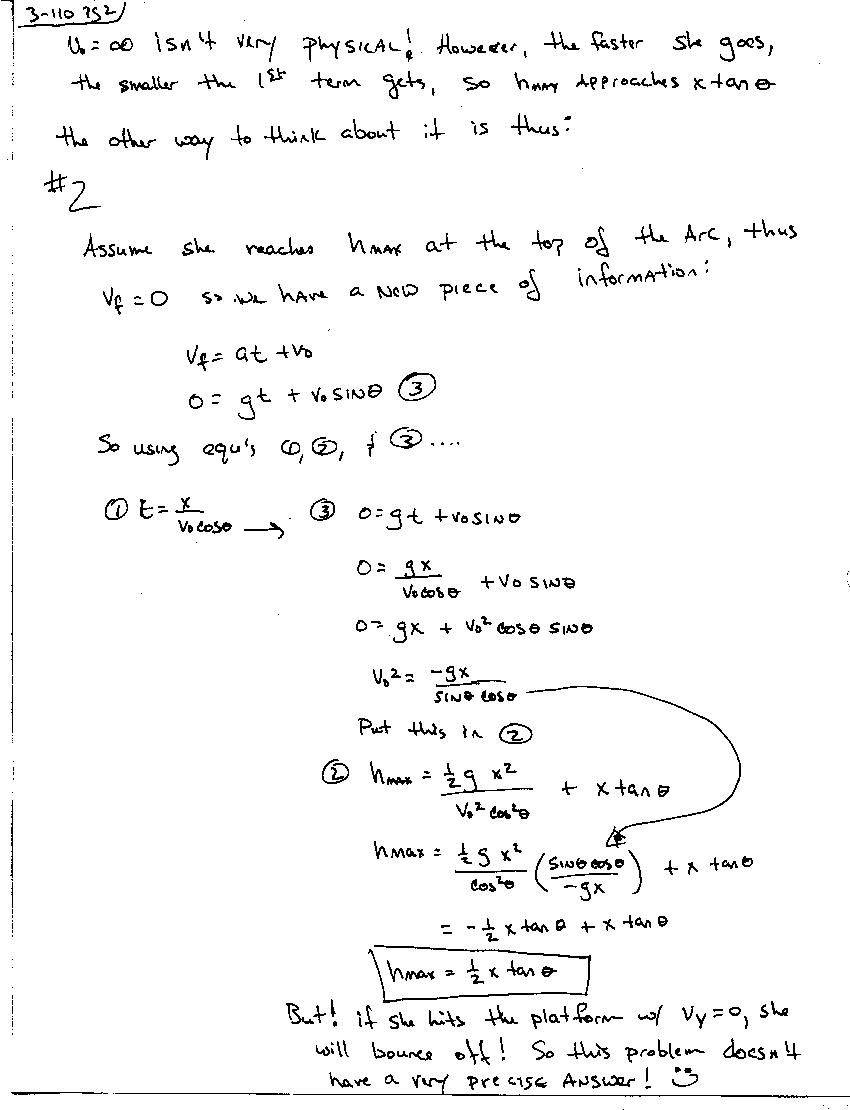 3-110 352
V₀ = ∞ isn't very PHYSICAL! However, the faster she goes,
the smaller the 1st term gets, so hmax Approaches x tan θ
the other way to think about it is thus:
#2
Assume she reaches hmax at the top of the Arc, thus
Vf = 0 so we have a new piece of information:
Vf = at + v₀
0 = gt + v₀ sin θ ③
So using equ's ①, ②, & ③ ....
① t = x / (v₀ cos θ) → ③ 0 = gt + v₀ sin θ
0 = gx / (v₀ cos θ) + v₀ sin θ
0 = gx + v₀² cos θ sin θ
v₀² = -gx / (sin θ cos θ)
Put this in ②
② hmax = ½ g x² / (v₀² cos² θ) + x tan θ
hmax = ½ g x² / cos² θ (sin θ cos θ / -gx) + x tan θ
= -½ x tan θ + x tan θ
hmax = ½ x tan θ
But! if she hits the platform w/ Vy = 0, she
will bounce off! So this problem doesn't
have a very precise answer! :)